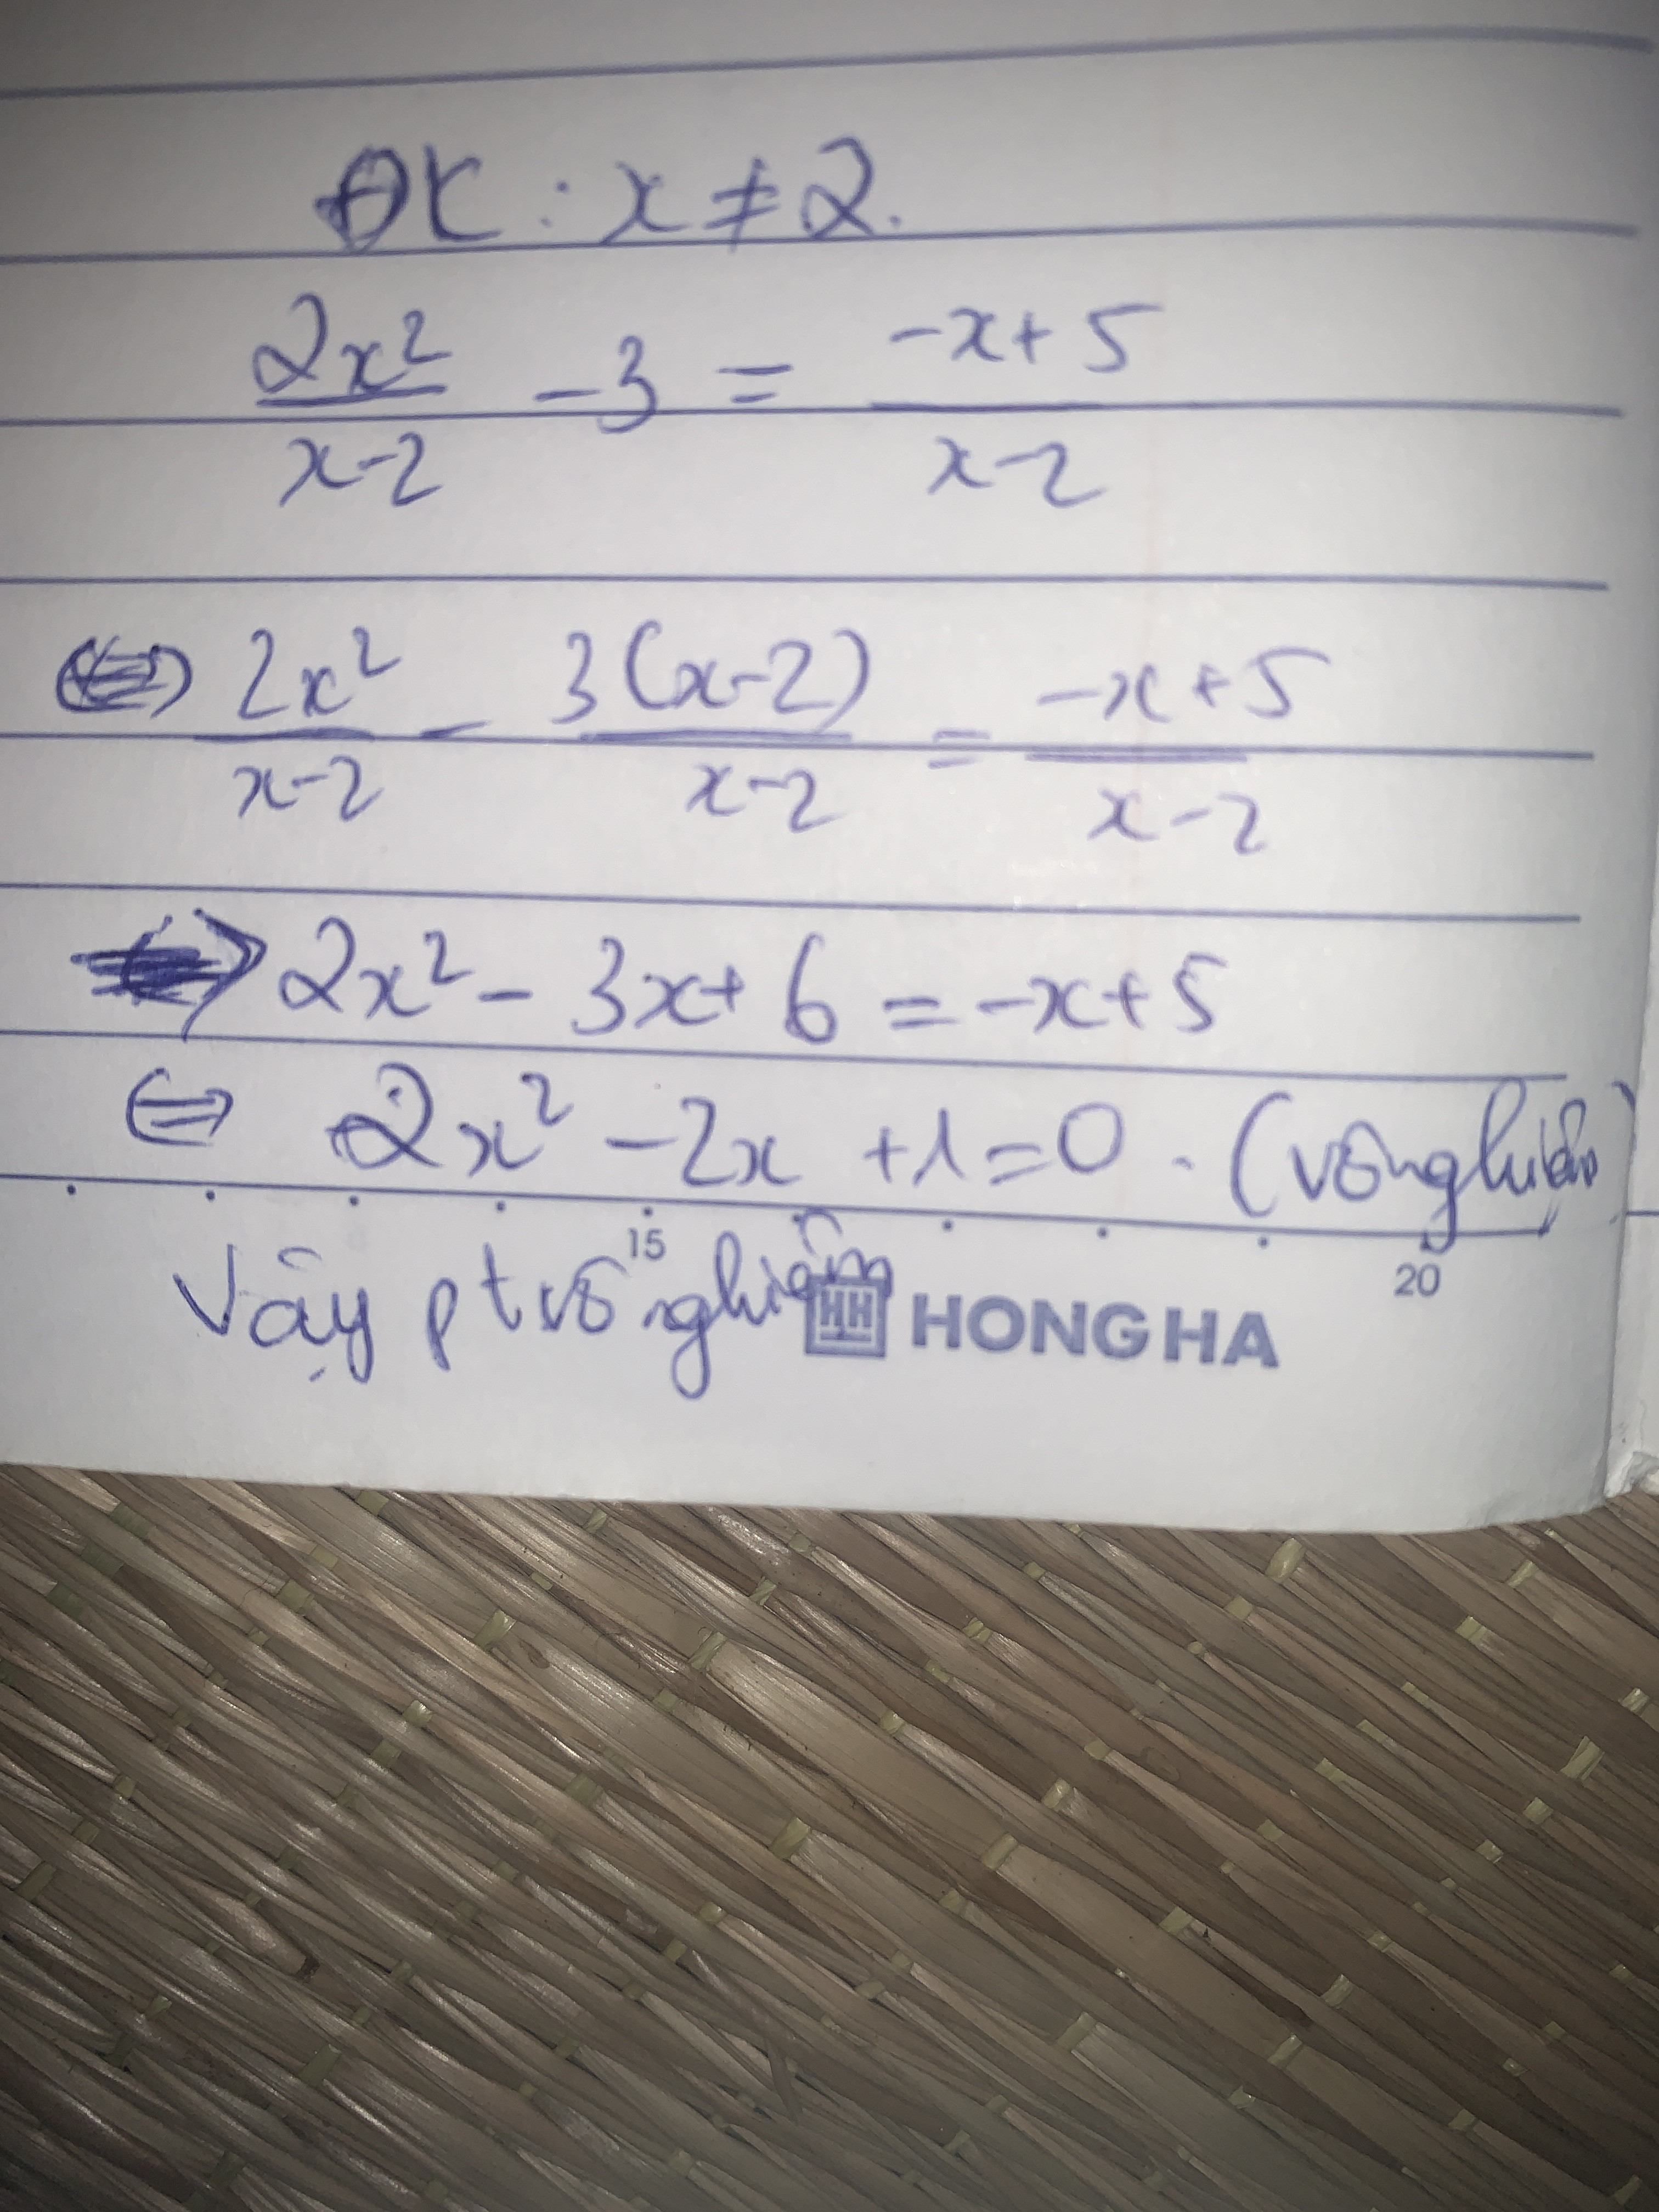 ĐK : x ≠ 2.
2x²/x-2 - 3 = -x+5/x-2
⇔ 2x²/x-2 - 3(x-2)/x-2 = -x+5/x-2
⇒ 2x² - 3x + 6 = -x+5
⇔ 2x² - 2x + 1 = 0. (vô nghiệm)
15 20
Vậy pt vô nghiệm
HH HONG HA